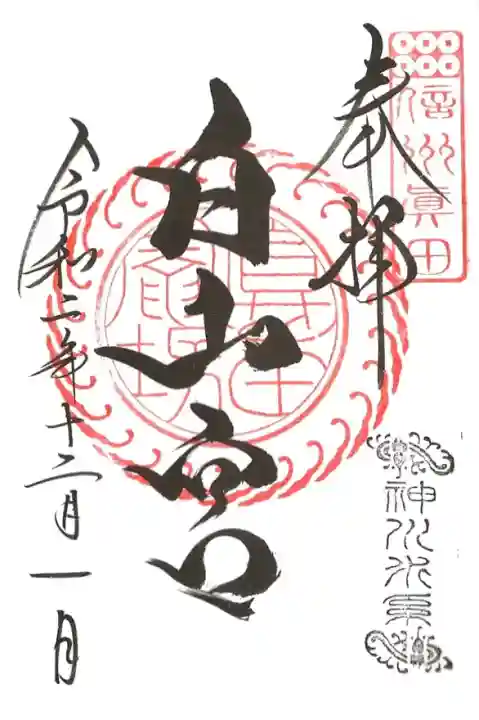 信州眞田
奉拝
白山宮
神川水系
令和二年十二月一日